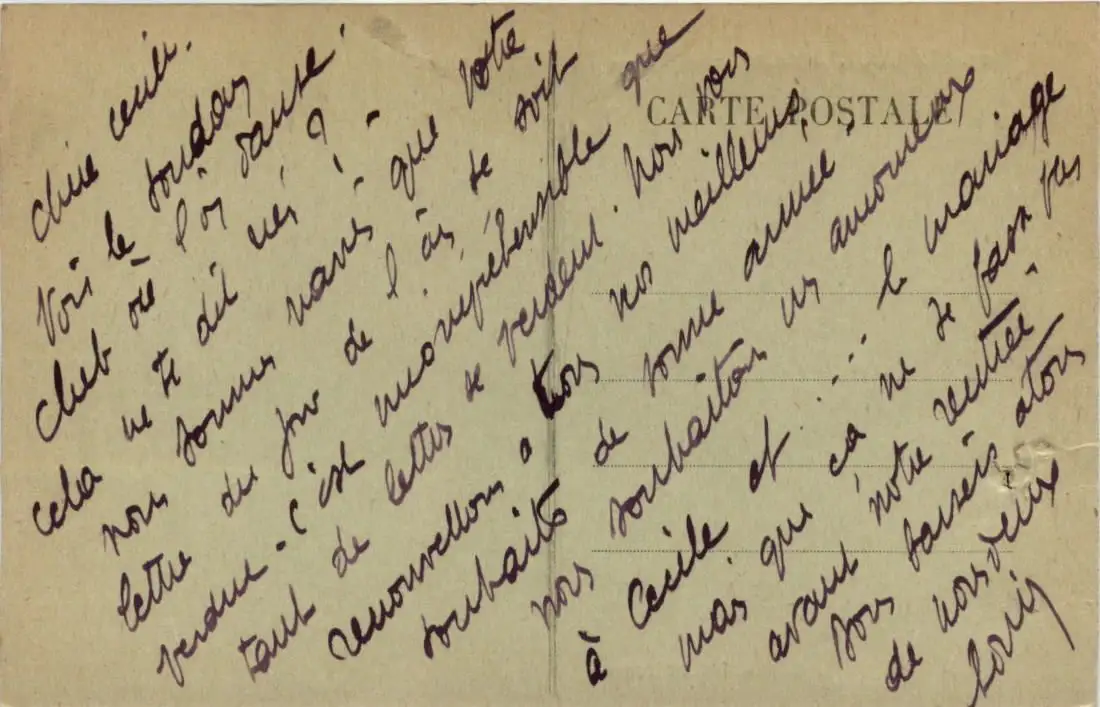 CARTE POSTALE
Chère Cécile.
Voici le tondoir
Club où l'on danse.
Cela ne te dit rien ?
nous sommes navrés que votre
lettre du jour de l'an se soit
perdue - c'est incompréhensible que
tant de lettres se perdent. Nous vous
renouvellons à tous nos meilleurs
souhaits de bonne année.
nous souhaitons un amoureux
à Cécile et ... le mariage
mais que ça ne se fasse pas
avant notre rentrée -
Bons baisers à tous
de nous deux
Louis